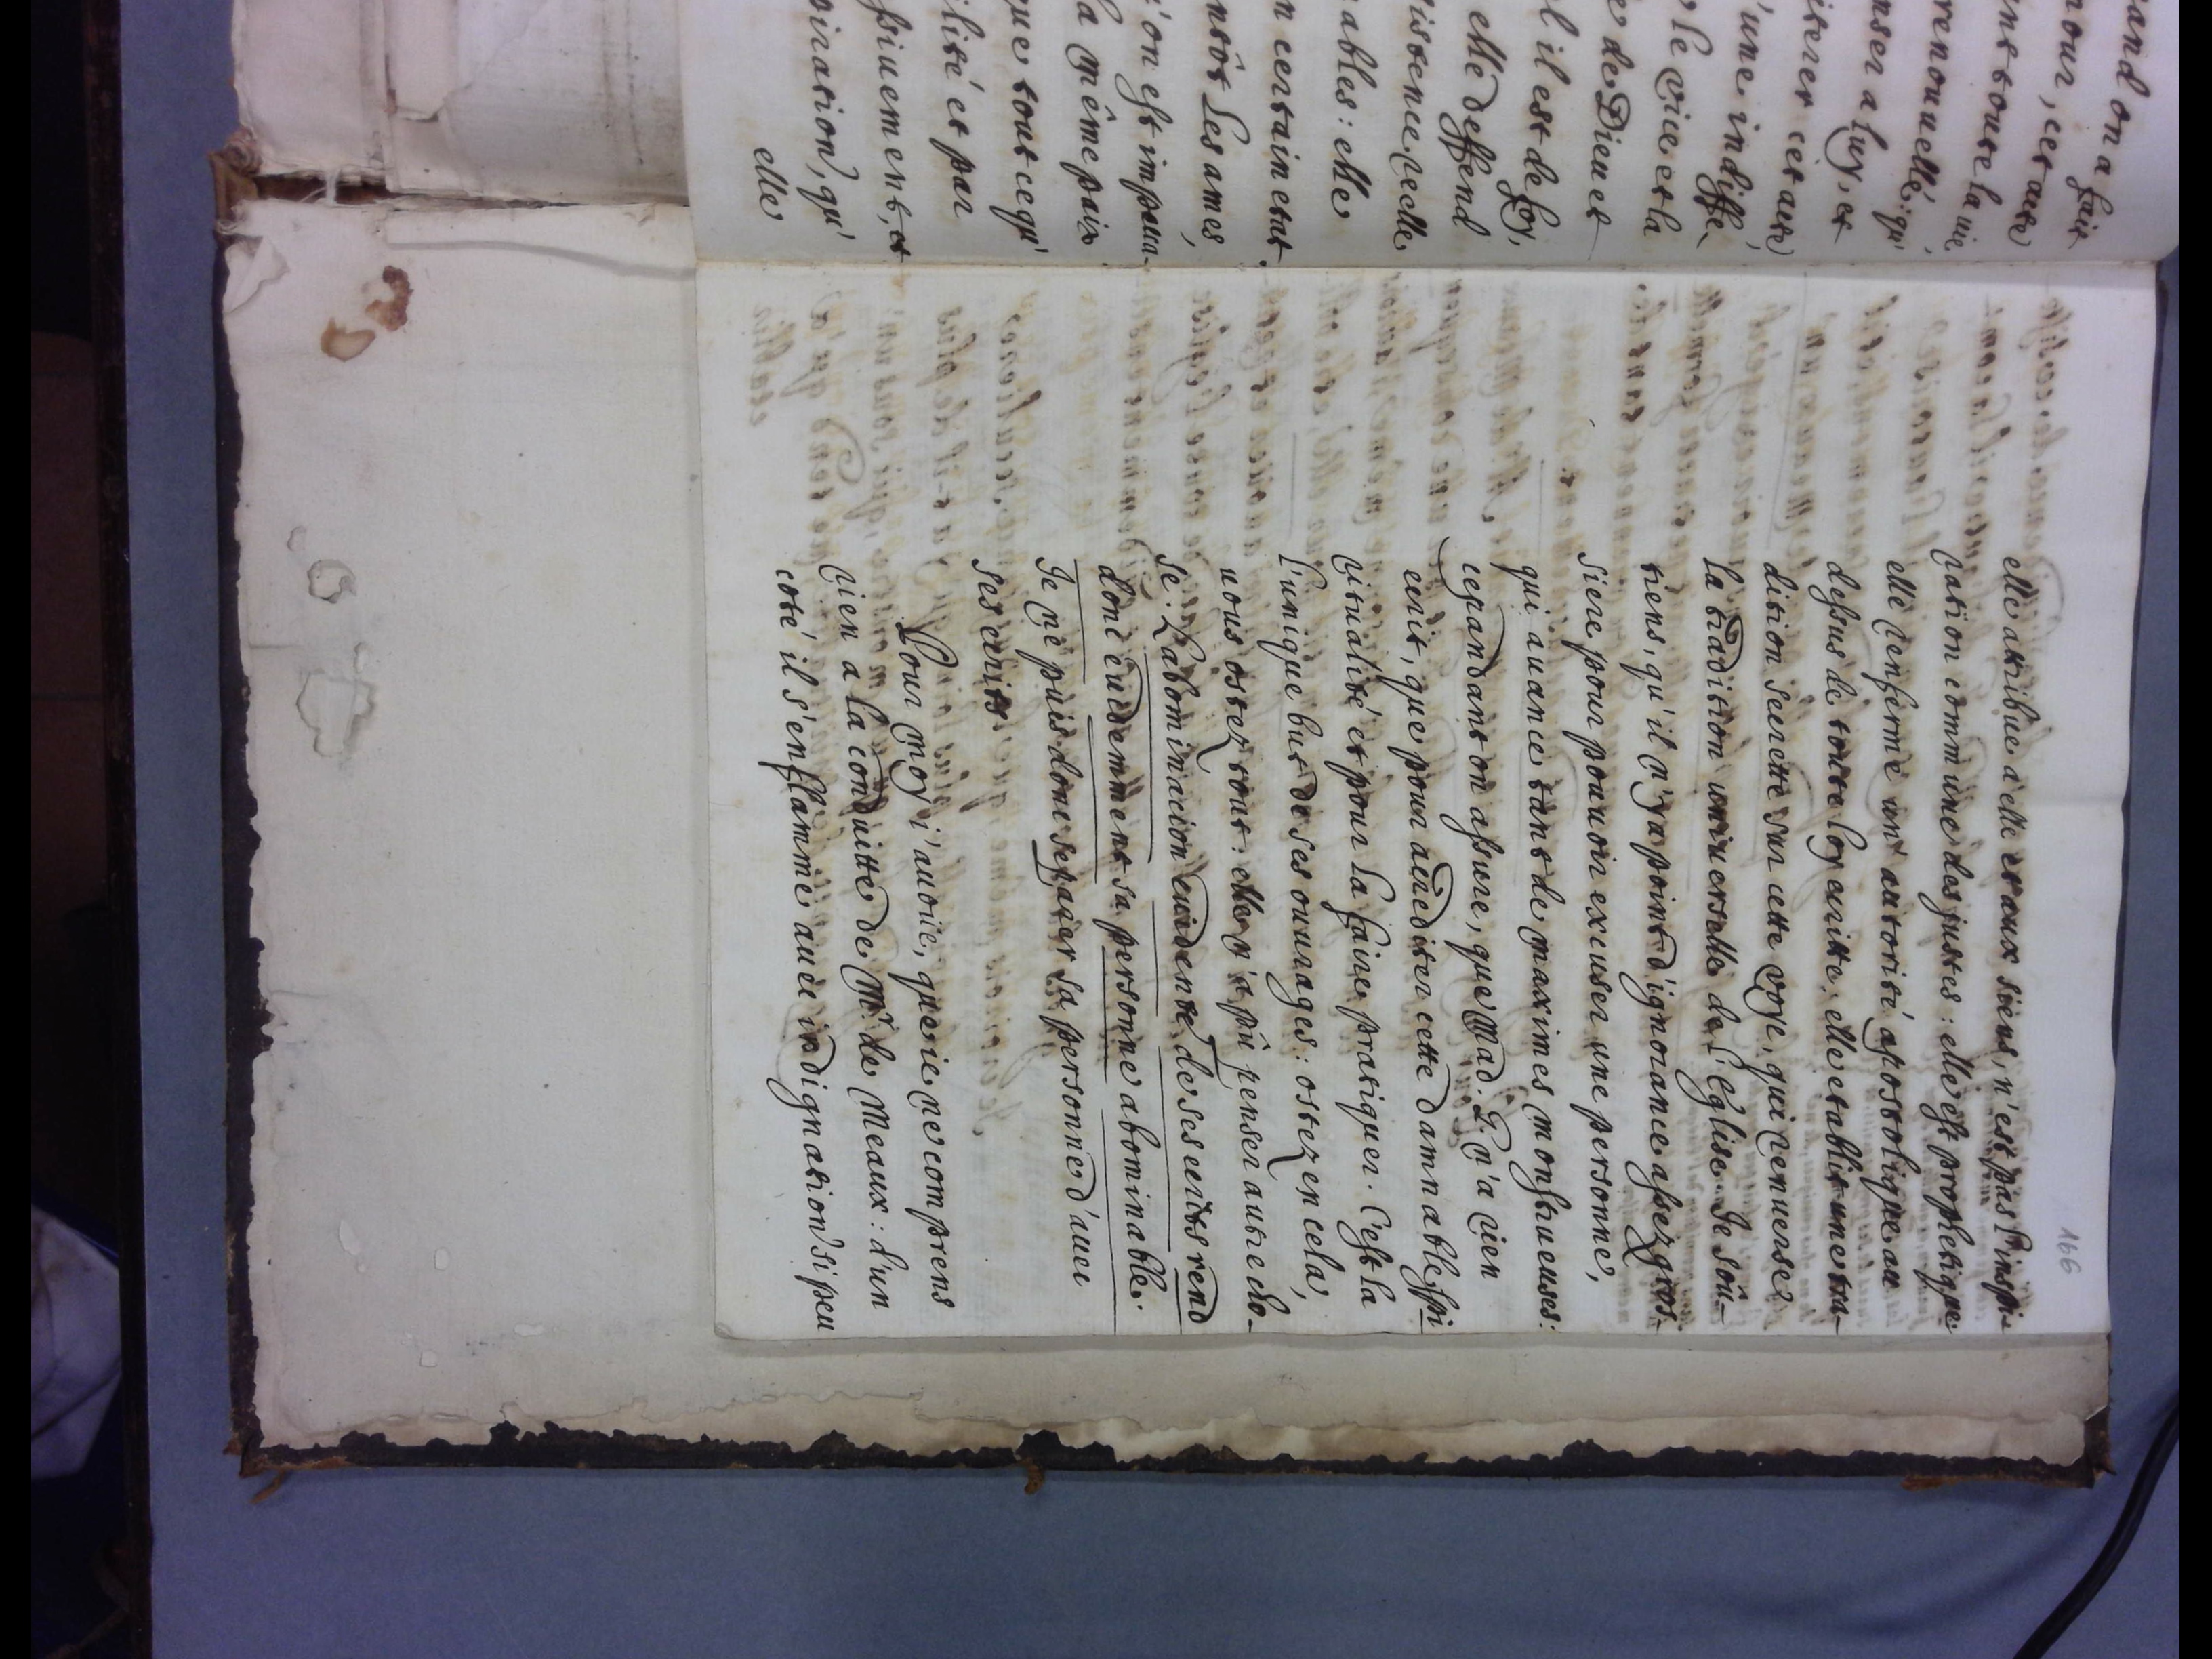 and on a fait
mour, cet acte
int toute la vie
renouuellé: qu'
nser a luy, et
iterer cet acte
'une indiffé,
le vice et la
de Dieu et
l il est de foy,
elle deffend
istence reelle
ables: elle
n certain etat.
ntôt les ames,
'on est impecca-
a même paix
que tout ce qu'
ilité et par
ssiuement, et
piration, qu'
elle
166
elle atribue a elle et aux siens, n'est pas l'inspi-
ration commune des justes: elle est prophetique:
elle renferme un' autorité apostolique au
dessus de toute loy ecritte. elle etablit une tra-
dition secrette sur cette voye, qui renuerse
la tradition uniuerselle de l'eglise. Je soû-
tiens, qu'il n'y a point d'ignorance assez gros-
siere pour pouuoir excuser une personne,
qui auance tant de maximes monstrueuses:
cependant on assure, que Mad. G. n'a rien
ecrit, que pour acrediter cette damnable spi
ritualité et pour la faire pratiquer. C'est la
l'unique but de ses ouurages: ostez en cela,
uous ostez tout: elle n'a pû penser autre cho-
se. L'abomination euidente de ses ecrits rend
donc euidemment sa personne abominable.
Je ne puis donc separer sa personne d'auec
ses ecrits
Pour moy j'auoüe, que je ne comprens
rien a la conduitte de Mr. de Meaux: d'un
coté il s'enflamme auec indignation si peu